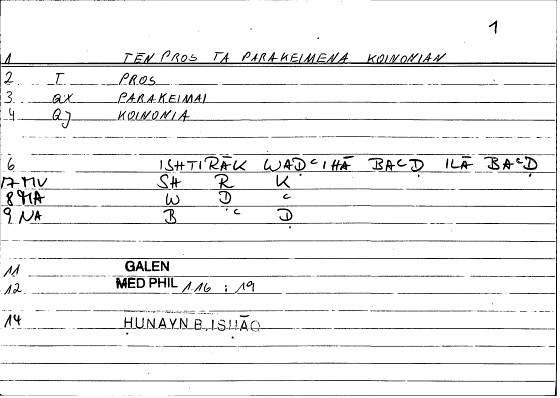 1
1 TEN PROS TA PARAKEIMENA KOINONIAN
2 T PROS
3 QX PARAKEIMAI
4 QJ KOINONIA
6 ISHTIRĀK WAḌᶜIHĀ BAᶜḌ ILĀ BAᶜḌ
17 MV SH R K
8 MA W Ḍ ᶜ
9 NA B ᶜ Ḍ
11 GALEN
12 MED PHIL 116 : 19
14 ḤUNAYN B. ISḤĀQ